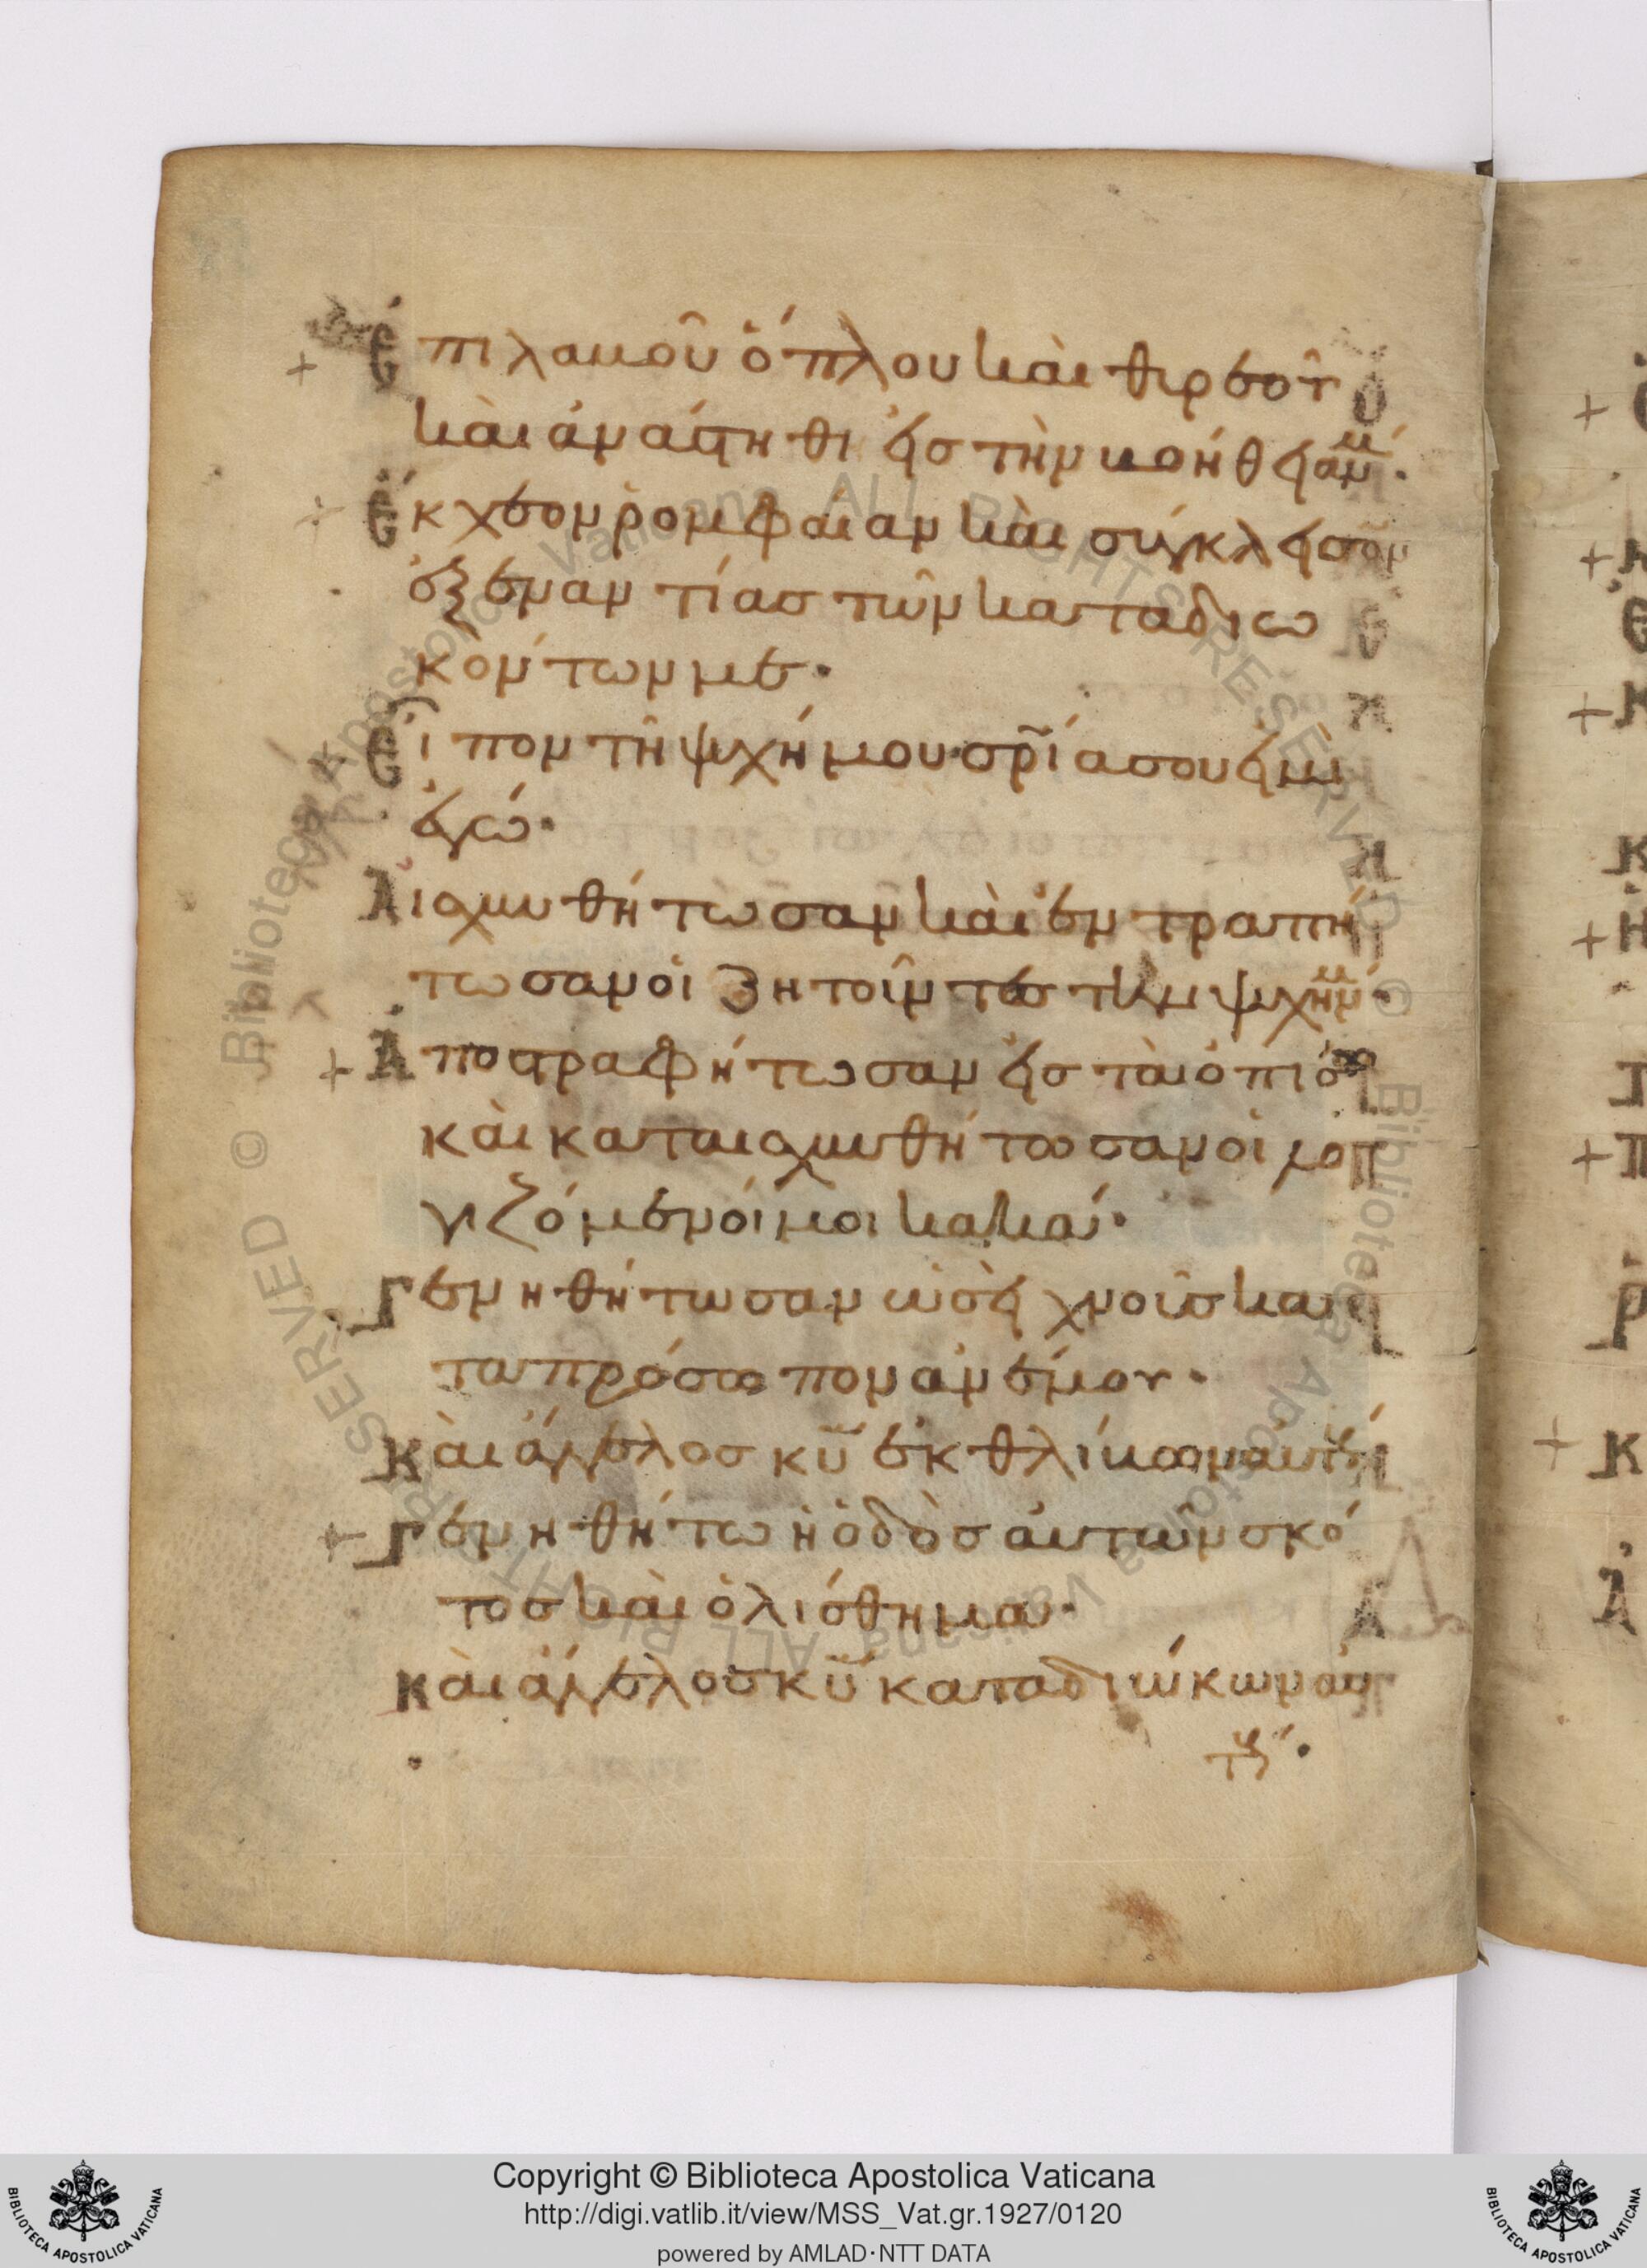 Ἐπιλαβοῦ ὅπλου καὶ θυρεοῦ
καὶ ἀνάστηθι εἰς τὴν βοήθειάν μ.
Ἔκχεον ῥομφαίαν καὶ σύγκλεισον
ἐξεναντίας τῶν καταδιω
κόντων με.
Εἶπον τῇ ψυχῇ μου σρ̅ία σου εἰμὶ
ἐγώ.
Αἰσχυνθήτωσαν καὶ ἐντραπή
τωσαν οἱ ζητοῦντες τὴν ψυχήν μ.
Ἀποστραφήτωσαν εἰς τὰ ὀπίσω
καὶ καταισχυνθήτωσαν οἱ λο
γιζόμενοί μοι κακά.
Γενηθήτωσαν ὡσεὶ χνοῦς κα
τὰ πρόσωπον ἀνέμου.
Καὶ ἄγγελος κ̅υ̅ ἐκθλίβων αὐτούς
Γενηθήτω ἡ ὁδὸς αὐτῶν σκό
τος καὶ ὀλίσθημα.
καὶ ἄγγελος κ̅υ̅ καταδιώκων αὐ
τούς.
Copyright © Biblioteca Apostolica Vaticana
http://digi.vatlib.it/view/MSS_Vat.gr.1927/0120
powered by AMLAD·NTT DATA
BIBLIOTECA APOSTOLICA VATICANA
BIBLIOTECA APOSTOLICA VATICANA